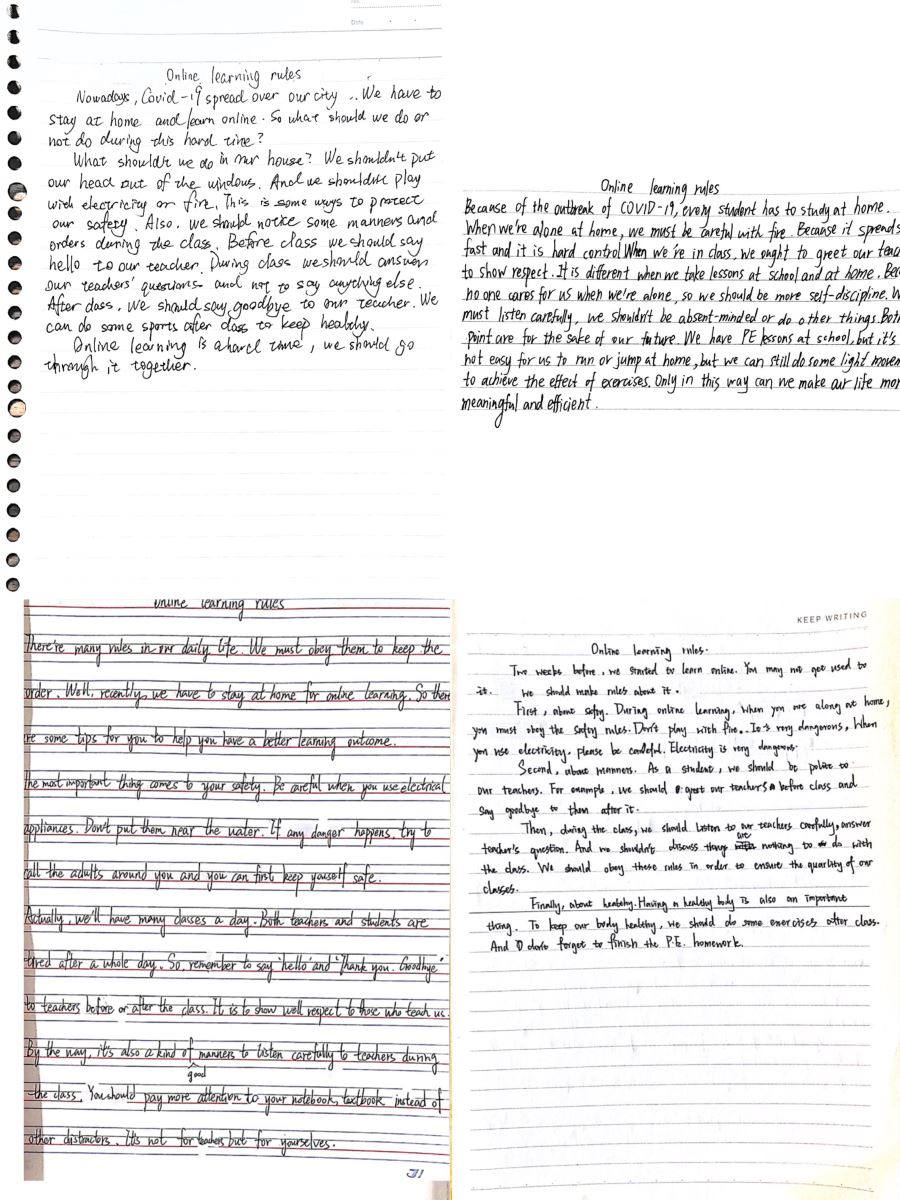 No.
Date
Online learning rules
Nowadays, Covid-19 spread over our city .. We have to
stay at home and learn online. So what should we do or
not do during this hard time?
What shouldn't we do in our house? We shouldn't put
our head out of the windows. And we shouldn't play
with electricity or fire. This is some ways to protect
our safety. Also, we should notice some manners and
orders during the class. Before class we should say
hello to our teacher. During class we should answer
our teachers' questions and not to say anything else.
After class, we should say goodbye to our teacher. We
can do some sports after class to keep healthy.
Online learning is a hard time, we should go
through it together.
Online learning rules
Because of the outbreak of COVID-19, every student has to study at home.
When we're alone at home, we must be careful with fire. Because it spreads
fast and it is hard control When we're in class, we ought to greet our teac
to show respect. It is different when we take lessons at school and at home. Bec
no one cares for us when we're alone, so we should be more self-discipline. W
must listen carefully, we shouldn't be absent-minded or do other things Both
point are for the sake of our future. We have PE lessons at school, but it's
not easy for us to run or jump at home, but we can still do some light movem
to achieve the effect of exercises. Only in this way can we make our life mor
meaningful and efficient.
Online learning rules
There're many rules in our daily life. We must obey them to keep the
order. Well, recently, we have to stay at home for online learning. So there
are some tips for you to help you have a better learning outcome.
The most important thing comes to your safety. Be careful when you use electrical
appliances. Don't put them near the water. If any danger happens, try to
call the adults around you and you can first keep youself safe.
Actually, we'll have many classes a day. Both teachers and students are
tired after a whole day. So, remember to say 'hello' and 'Thank you. Goodbye'
to teachers before or after the class. It is to show well respect to those who teach us.
By the way, it's also a kind of manners to listen carefully to teachers during
good
the class. You should pay more attention to your notebook, textbook instead of
other distractors. It's not for teachers but for yourselves.
KEEP WRITING
Online learning rules.
Two weeks before, we started to learn online. You may not get used to
it. We should make rules about it.
First, about safty. During online learning, when you are along at home,
you must obey the safty rules. Don't play with fire. It's very dangerous, When
you use electricity, please be careful. Electricity is very dangerous.
Second, about manners. As a student, we should be polite to
our teachers. For example, we should greet our teachers before class and
say goodbye to them after it.
Then, during the class, we should listen to our teachers carefully, answer
teacher's question. And we shouldn't discuss things are nothing to do with
the class. We should obey these rules in order to ensure the quarlity of our
classes.
Finally, about healthy. Having a healthy body is also an important
thing. To keep our body healthy, we should do some exercises after class.
And don't forget to finish the P.E. homework.